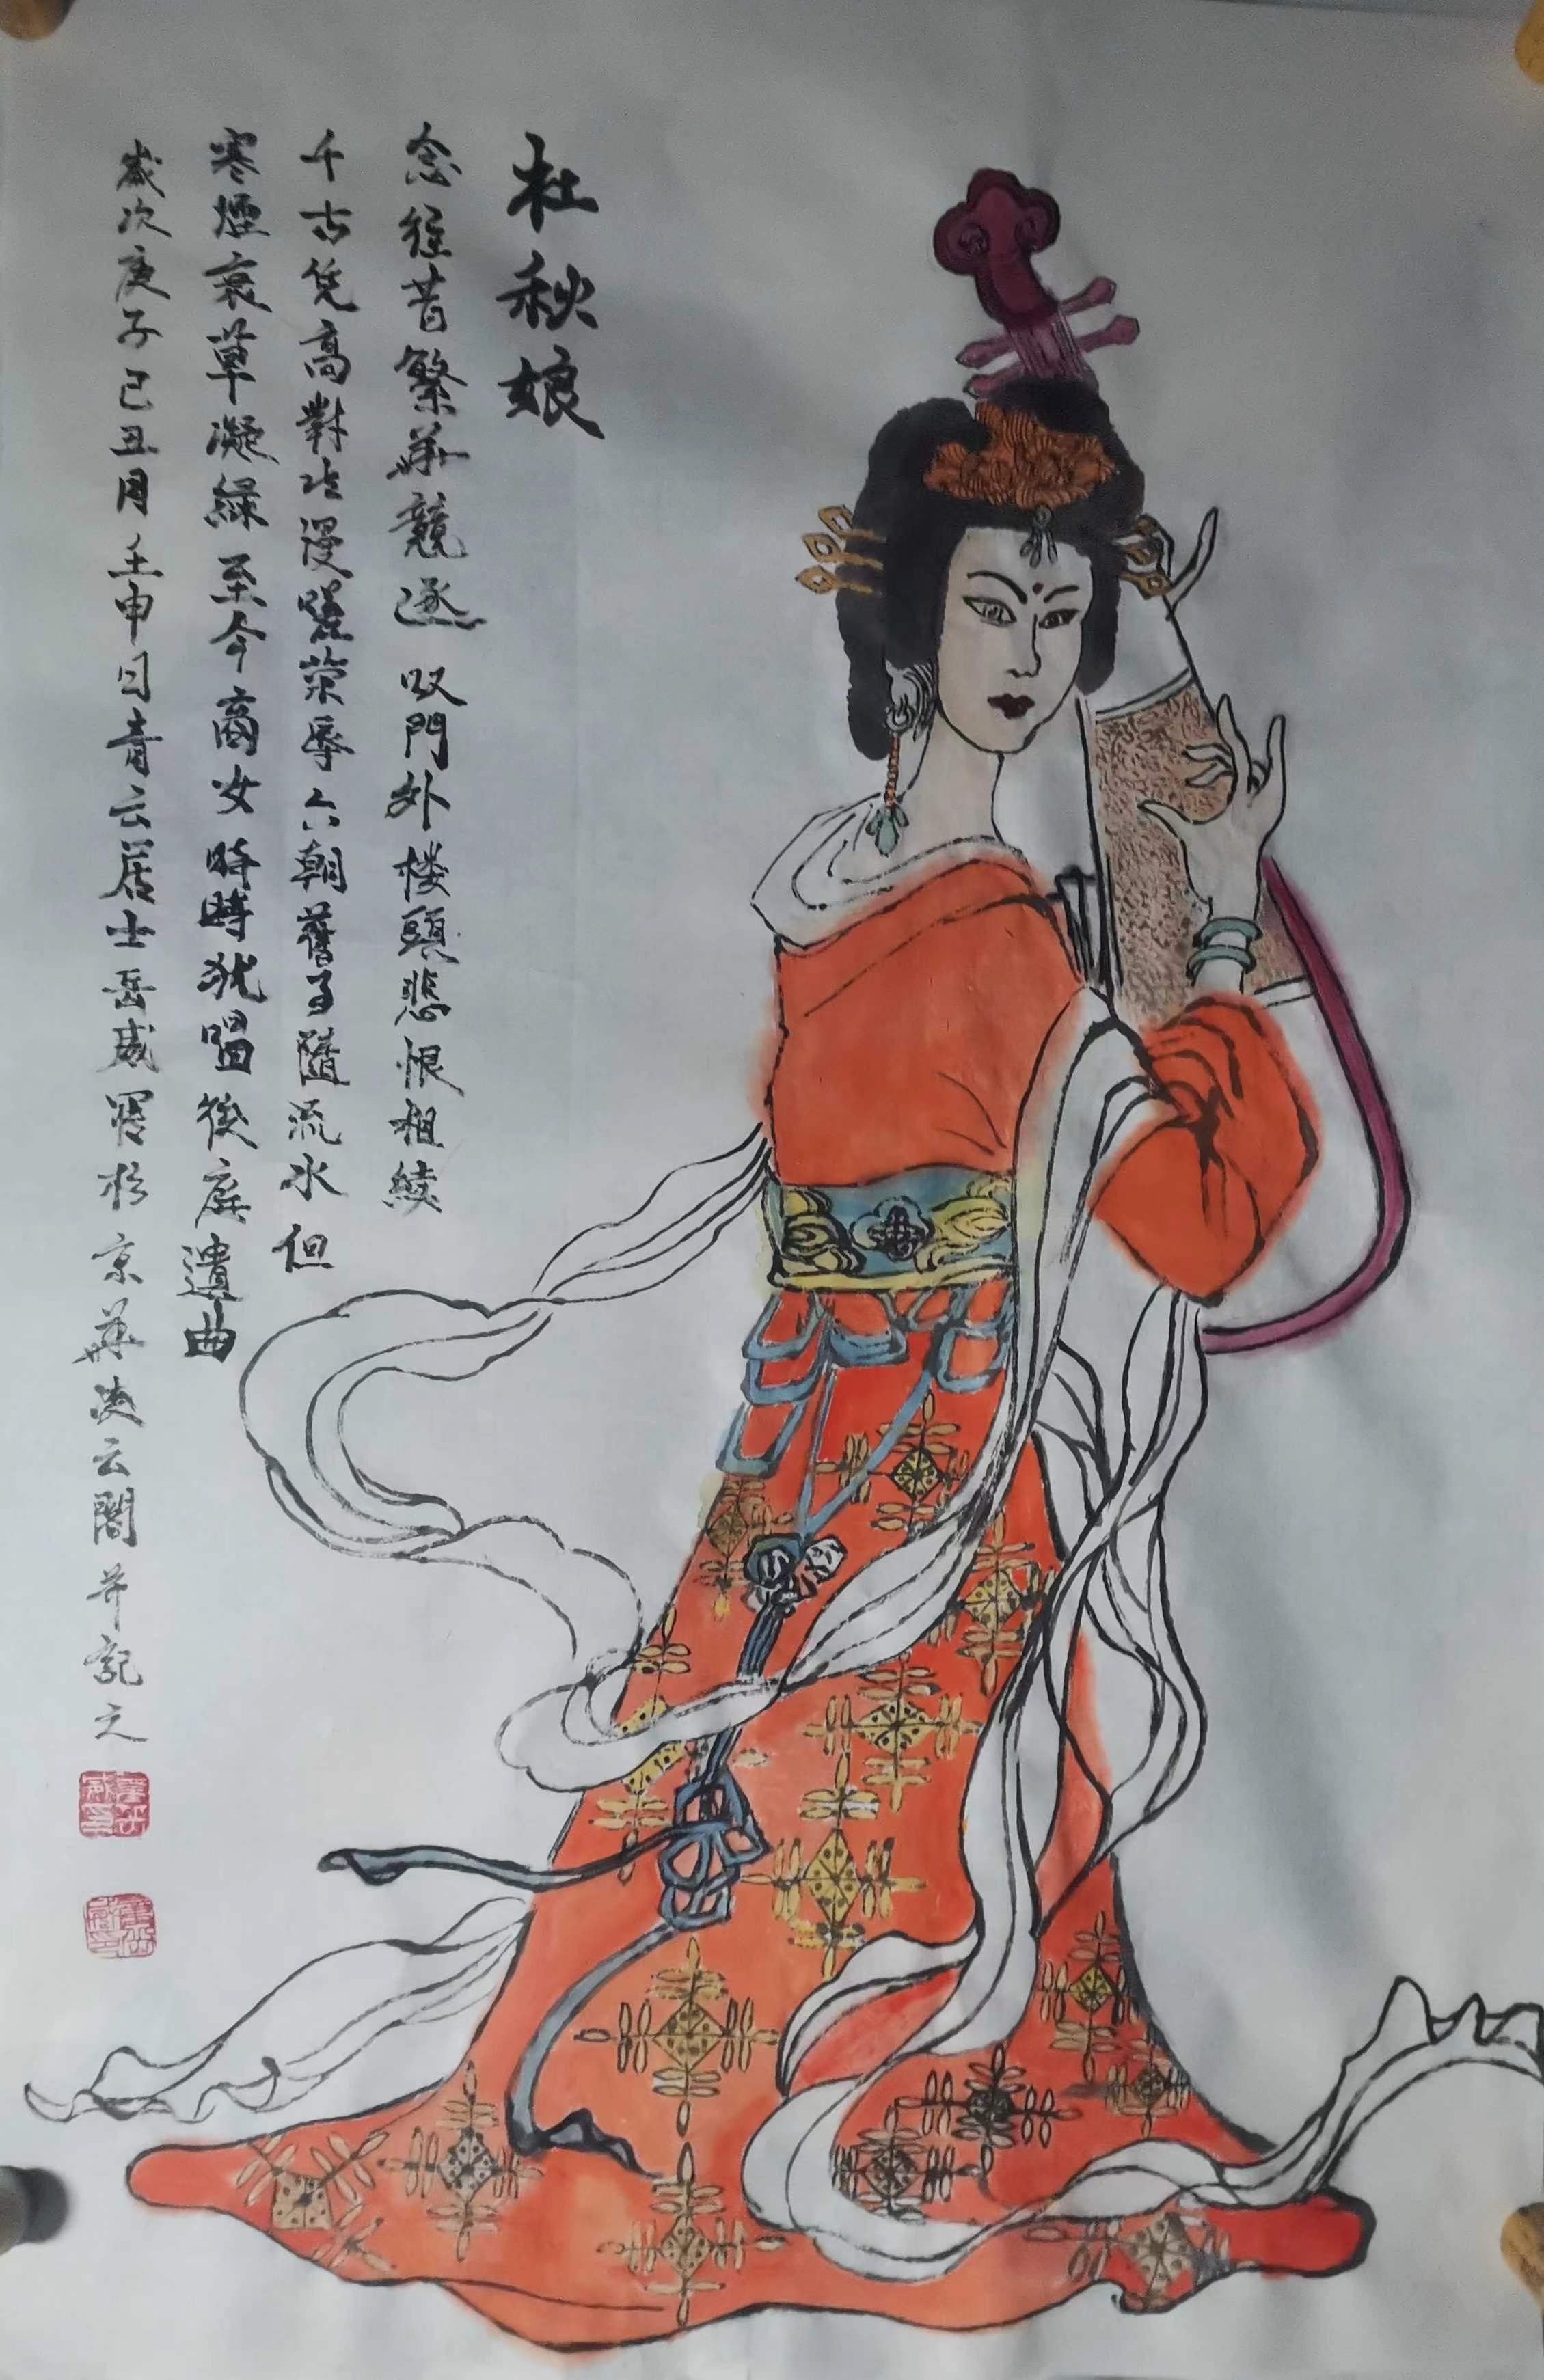 杜秋娘
念往昔繁華競逐叹門外楼頭悲恨相續
千古凭高對此漫嗟荣辱六朝舊事隨流水但
寒煙衰草凝綠至今商女時時犹唱後庭遺曲
歲次庚子己丑月壬申日青云居士岳威寫於京華凌云閣并記之